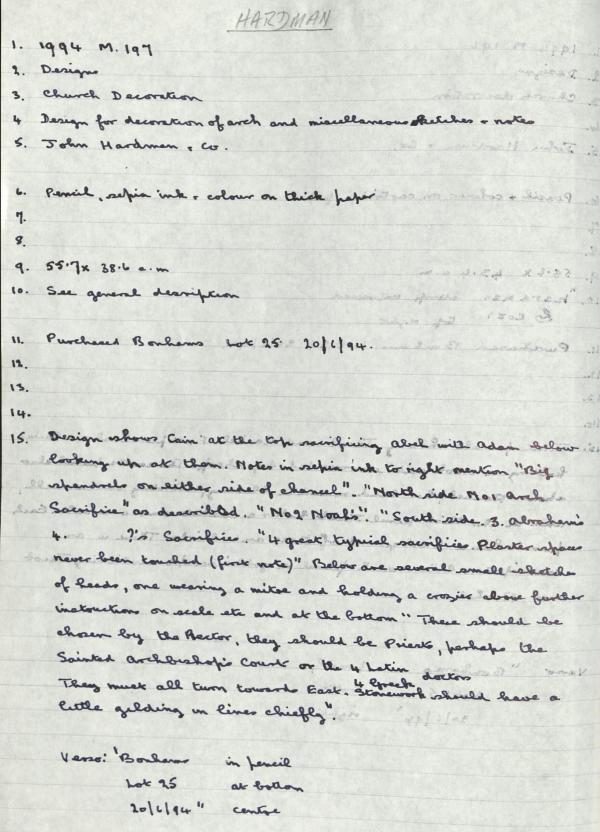 HARDMAN
1. 1994 M. 197
2. Designs
3. Church Decoration
4 Design for decoration of arch and miscellaneous sketches + notes
5. John Hardman + Co.
6. Pencil, sepia ink + colour on thick paper
7.
8.
9. 55.7 x 38.6 c.m
10. See general description
11. Purchased Bonhams Lot 25 20/6/94.
12.
13.
14.
15. Design shows Cain at the top sacrificing Abel with Adam below
looking up at them. Notes in sepia ink to right mention "Big
spandrels on either side of chancel". "North side No1 Arch
Sacrifice" as described. "No2 Noah's". "South side. 3. Abraham's
4. ?'s Sacrifices. "4 great typical sacrifices. Plaster spaces
never been touched (first note)" Below are several small sketches
of heads, one wearing a mitre and holding a crozier above further
instructions on scale etc and at the bottom "These should be
chosen by the Rector, they should be Priests, perhaps the
Sainted Archbishops Court or the 4 Latin doctors
4 Greek
They must all turn towards East. Stonework should have a
little gilding in lines chiefly".
Verso: 'Bonhams in pencil
Lot 25 at bottom
20/6/94" centre